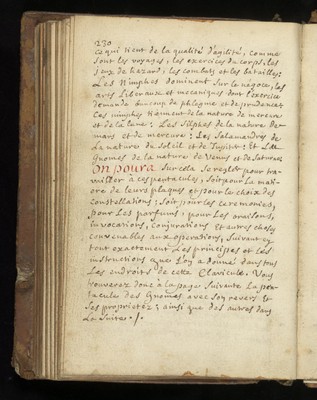 230
ce qui tient de la qualité d'agilité, comme
sont les voyages, les exercices du corps, les
jeux de hazard, les combats et les batailles;
Les Nimphes dominent sur le négoce, les
arts Liberaux et mecaniques dont l'exercice
demande baucoup de phlegme et de prudence;
Ces nimphes tiennent de la nature de mercure
et de la lune: Les Silphes de la nature de
mars et de mercure: Les Salamandres de
La nature du Soleil et de Jupiter: Et Les
Gnomes de la nature de Venus et de Saturne;
On poura sur cela se regler pour tra-
vailler à ces pentacules, soit pour La mati-
ere de leurs plaques et pour le choix des
Constellations; soit pour les ceremonies,
pour Les parfums, pour Les oraisons,
invocations, conjurations et autres choses
convenables aux operations, Suivant en
tout exactement Les principes et les
instructions que l'on a donné dans tous
Les endroits de cette Clavicule. Vous
trouverez donc à la page Suivante La pen-
tacule des Gnomes avec son revers et
ses proprietéz; ainsi que des autres dans
La Suite ./.